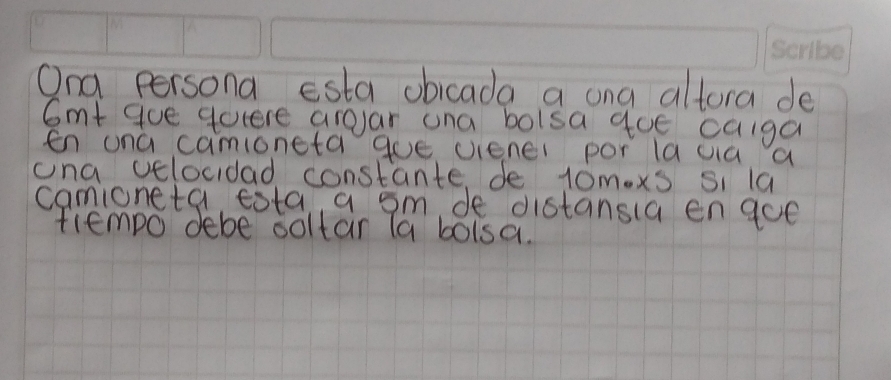 Scribe
Una persona esta ubicada a una altura de
6mt que quiere arojar una bolsa que caiga
en una camioneta que viene por la via a
una velocidad constante de 10m.xs si la
camioneta esta a 5m de distansia en que
tiempo debe soltar la bolsa.